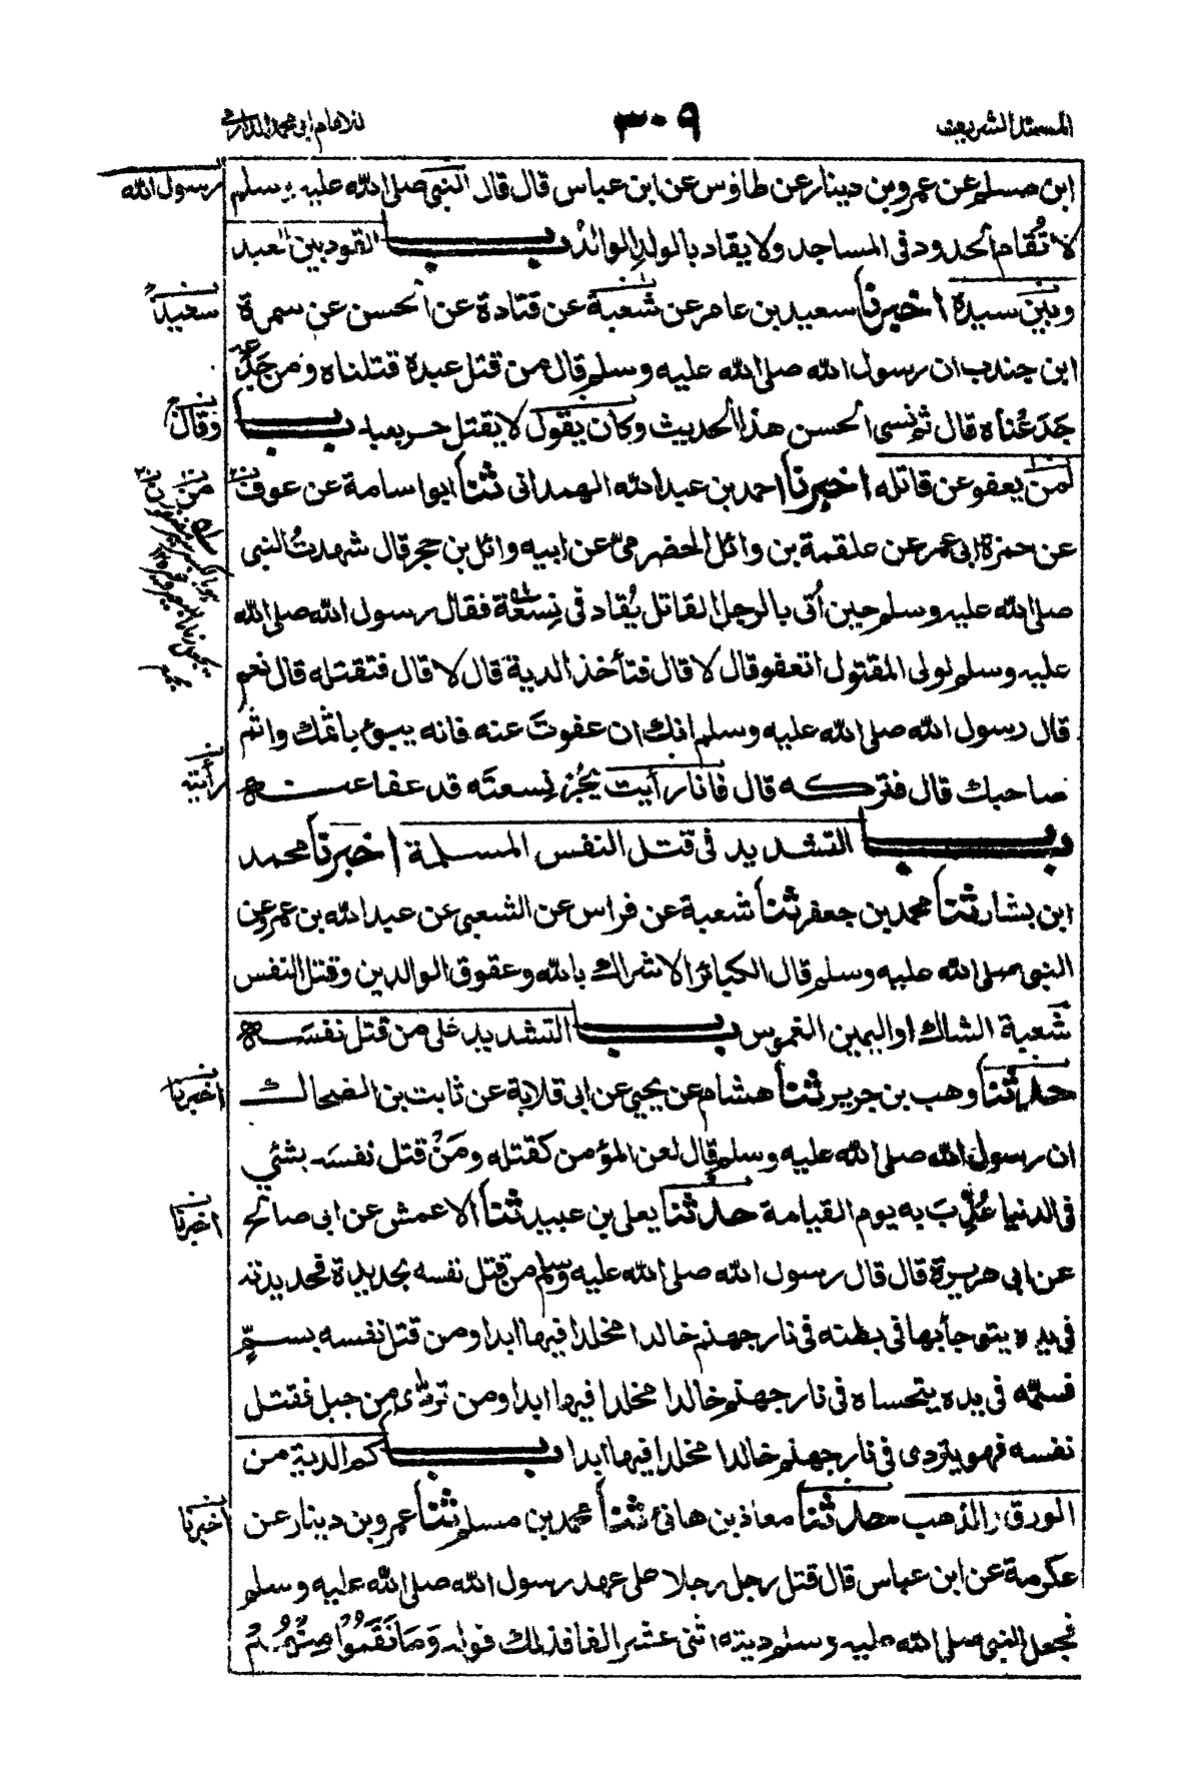 المسند الشريف
٣٠٩
للامام ابی محمد الدارمی
ابن مسلم عن عمرو بن دينار عن طاؤس عن ابن عباس قال قال النبی صلی الله عليه وسلم
رسول الله
لا تُقام الحدود فی المساجد ولا يقاد بالولد الوالدُ باب القود بين العبد
وبين سيدة اخبرنا سعيد بن عامر عن شعبة عن قتادة عن الحسن عن سمرة
سعيد
ابن جندب ان رسول الله صلی الله عليه وسلم قال من قتل عبده قتلناه ومن جَدَع
جَدَعْناه قال ثم نسی الحسن هذا الحديث وكان يقول لا يقتل حر بعبد باب
وقال
لمن يعفو عن قاتله اخبرنا احمد بن عبد الله الهمدانی ثنا ابو اسامة عن عوف
من
عن حمزة ابی عمر عن علقمة بن وائل الحضرمی عن ابيه وائل بن حجر قال شهدتُ النبی
صلی الله عليه وسلم حين اُتی بالرجل القاتل يُقاد فی نِسعة فقال رسول الله صلی الله
عليه وسلم لولی المقتول اتعفو قال لا قال فتأخذ الدية قال لا قال فتقتله قال نعم
قال رسول الله صلی الله عليه وسلم انك ان عفوتَ عنه فانه يبوء باثمك واثم
صاحبك قال فتركه قال فانا رأيت يجُرّ نِسعتَه قد عفا عنه
رأيته
باب التشديد فی قتل النفس المسلمة اخبرنا محمد
ابن بشار ثنا محمد بن جعفر ثنا شعبة عن فراس عن الشعبی عن عبد الله بن عمرو عن
النبی صلی الله عليه وسلم قال الكبائر الاشراك بالله وعقوق الوالدين وقتل النفس
شعبة الشاك او اليمين الغموس باب التشديد علی من قتل نفسَه
حدثنا وهب بن جرير ثنا هشام عن يحيی عن ابی قلابة عن ثابت بن الضحاك
اخبرنا
ان رسول الله صلی الله عليه وسلم قال لعن المؤمن كقتله ومَنْ قتل نفسَه بشئي
فی الدنيا عُذِّبَ به يوم القيامة حدثنا يعلی بن عبيد ثنا الاعمش عن ابی صالح
اخبرنا
عن ابی هريرة قال قال رسول الله صلی الله عليه وسلم من قتل نفسه بحديدة فحديدته
فی يده يتوجأ بها فی بطنه فی نار جهنم خالدا مخلدا فيها ابدا ومن قتل نفسه بسمّ
فسمّه فی يده يتحساه فی نار جهنم خالدا مخلدا فيها ابدا ومن تردّی من جبل فقتل
نفسه فهو يتردی فی نار جهنم خالدا مخلدا فيها ابدا باب كم الدية من
الورق والذهب حدثنا معاذ بن هانئ ثنا محمد بن مسلم ثنا عمرو بن دينار عن
اخبرنا
عكرمة عن ابن عباس قال قتل رجل رجلا علی عهد رسول الله صلی الله عليه وسلم
فجعل النبی صلی الله عليه وسلم ديته اثنی عشر الفا فذلك قوله وَمَا نَقَمُوْا مِنْهُمْ